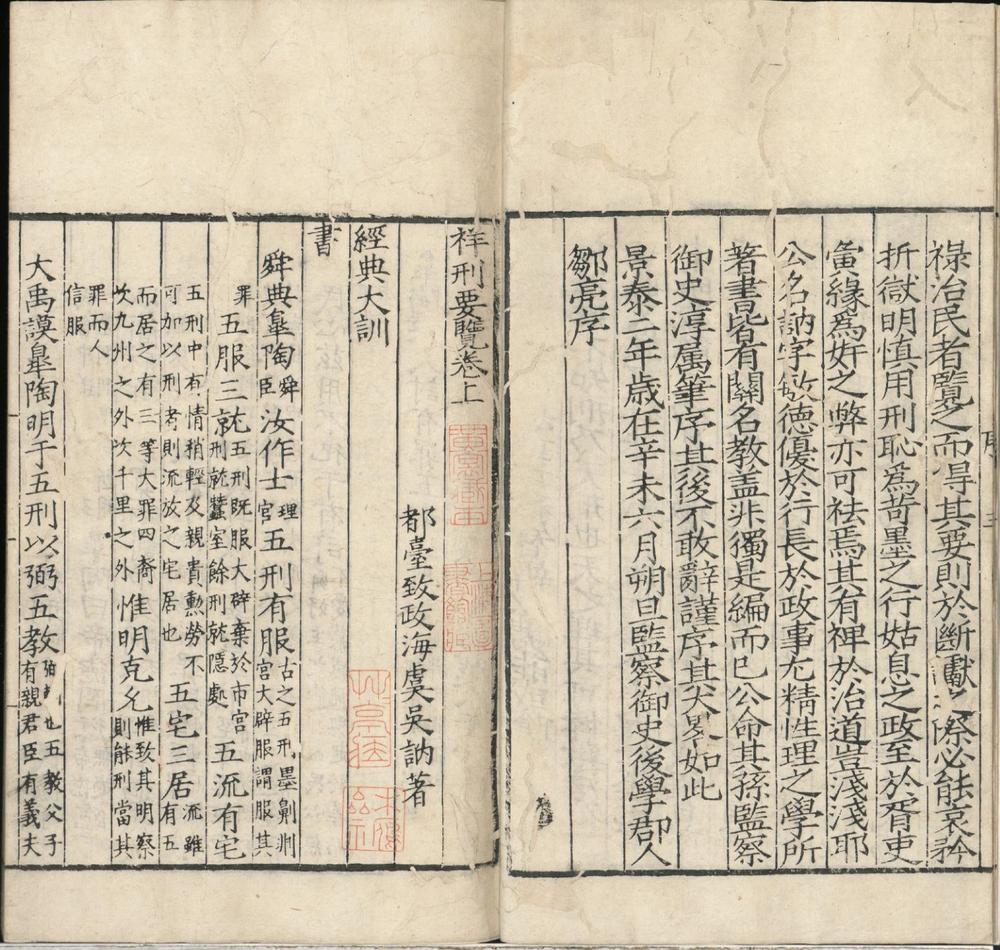 祿治民者覽之而得其要則於斷讞之際必能哀矜
折獄明慎用刑恥為苛墨之行姑息之政至於胥吏
夤緣為奸之弊亦可祛焉其有裨於治道豈淺淺耶
公名訥字敏德優於行長於政事尤精性理之學所
著書皆有關名教盖非獨是編而已公命其孫監察
御史淳属筆序其後不敢辭謹序其大畧如此
景泰二年歲在辛未六月朔旦監察御史後學郡人
鄒亮序
序
三
祥刑要覽卷上
都臺致政海虞吳訥著
經典大訓
書
舜典臯陶舜臣汝作士理官五刑有服古之五刑墨劓剕宮大辟服謂服其
罪五服三就五刑既服大辟棄於市宮刑就蠶室餘刑就隱處五流有宅
五刑中有情稍輕及親貴勲勞不可加以刑者則流放之宅居也五宅三居流雖有五
而居之有三等大罪四裔次九州之外次千里之外惟明克允惟致其明察則能刑當其
罪而人信服
大禹謨臯陶明于五刑以弼五教弼輔也五教父子有親君臣有義夫